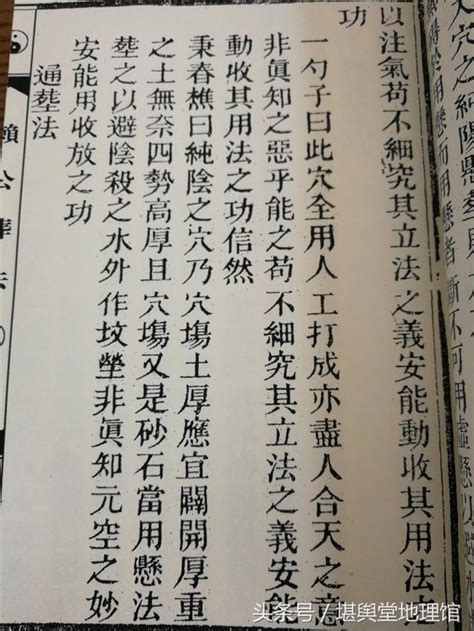 用懸而用懸者斷不可用虛懸以
以注氣苟不細究其立法之義安能動收其用法之
功
一勺子曰此穴全用人工打成亦盡人合天之意
非眞知之惡乎能之苟不細究其立法之義安能
動收其用法之功信然
秉春樵曰純陰之穴乃穴塲土厚應宜闢開厚重
之土無奈四勢高厚且穴塲又是砂石當用懸法
塟之以避陰殺之水外作坟塋非眞知元空之妙
安能用收放之功
通塟法
賴公葬法
头条号 / 堪舆堂地理馆